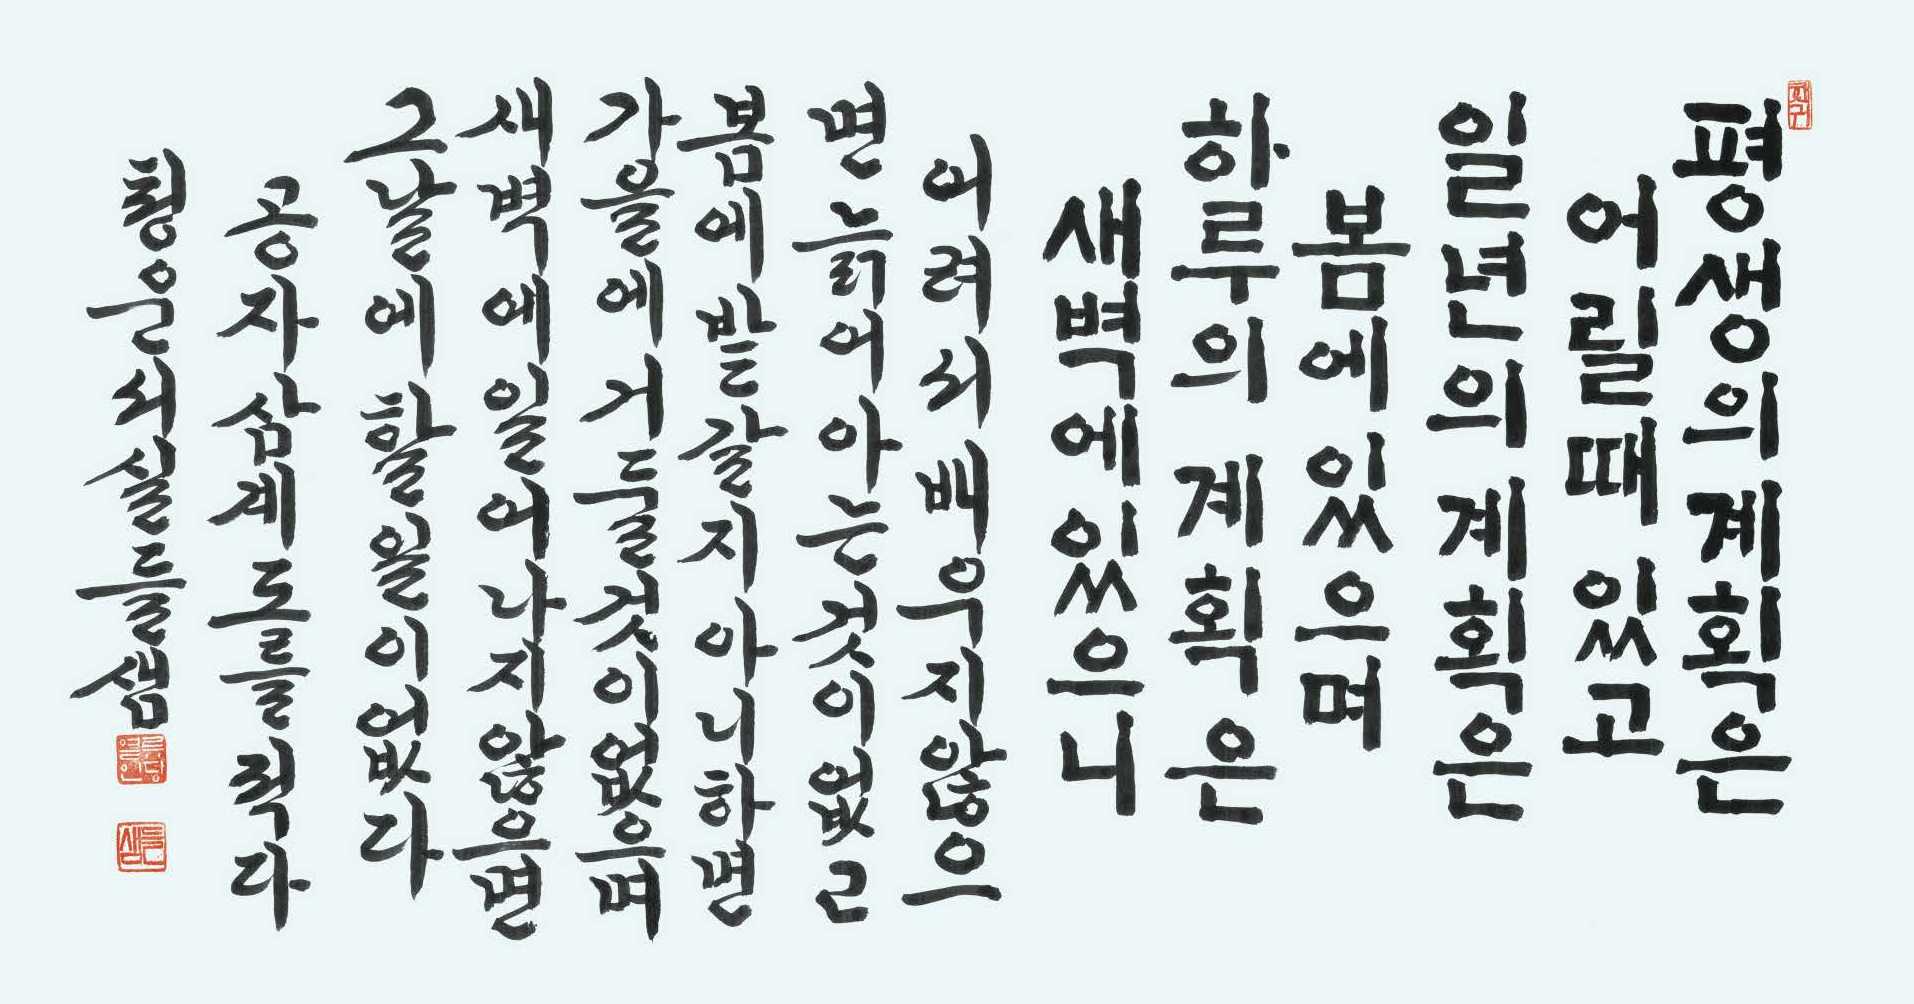 평생의계획은
어릴때 있고
일년의계획은
봄에 있으며
하루의 계획은
새벽에있으니
어려서 배우지않으
면늙어아는것이없고
봄에밭갈지아니하면
가을에거둘것이없으며
새벽에일어나지않으면
그날에할일이없다
공자삼계도를적다
청운서실들샘
들샘